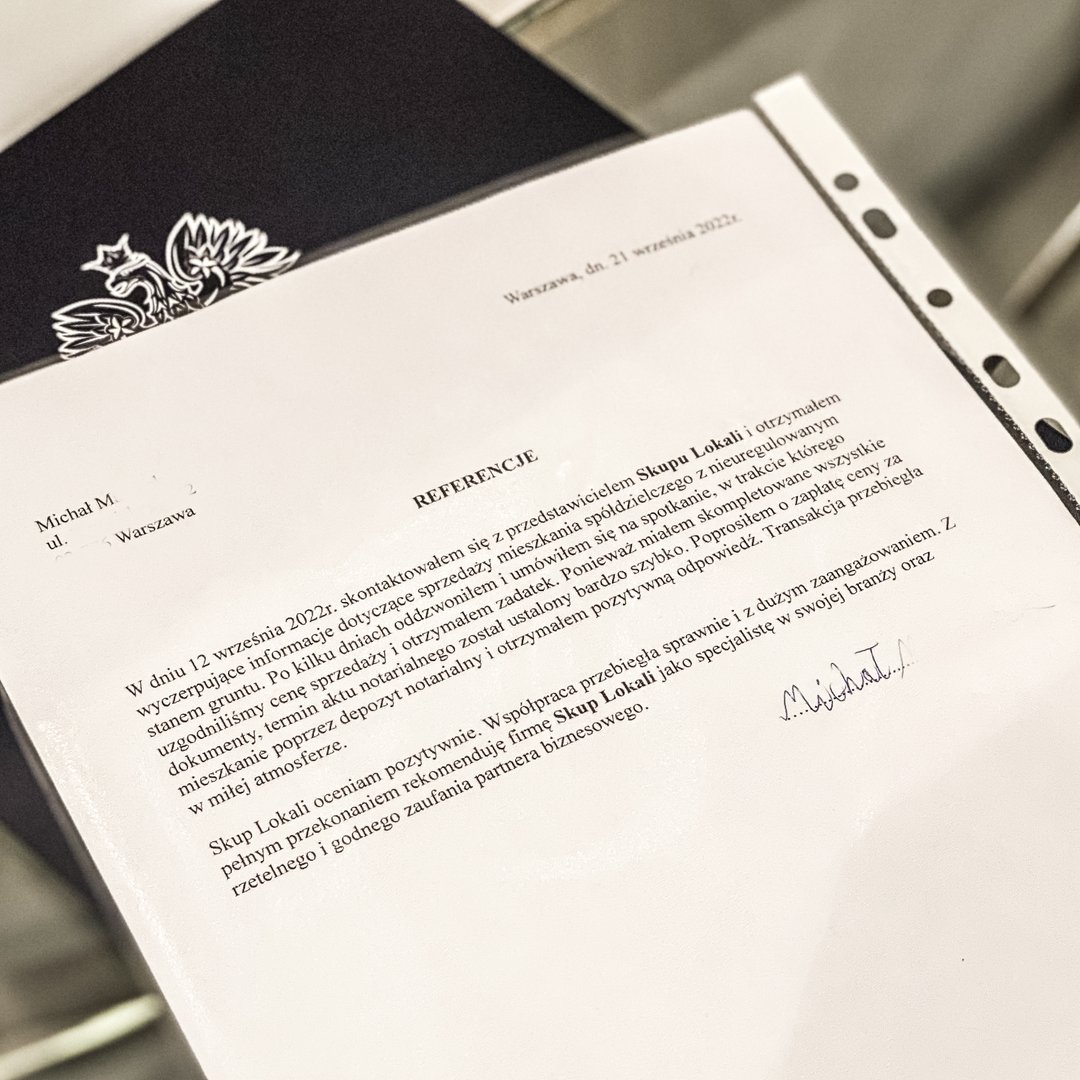 Warszawa, dn. 21 września 2022r.
Michał M.
2
ul.
Warszawa
REFERENCJE
W dniu 12 września 2022r. skontaktowałem się z przedstawicielem Skupu Lokali i otrzymałem
wyczerpujące informacje dotyczące sprzedaży mieszkania spółdzielczego z nieuregulowanym
stanem gruntu. Po kilku dniach oddzwoniłem i umówiłem się na spotkanie, w trakcie którego
uzgodniliśmy cenę sprzedaży i otrzymałem zadatek. Ponieważ miałem skompletowane wszystkie
dokumenty, termin aktu notarialnego został ustalony bardzo szybko. Poprosiłem o zapłatę ceny za
mieszkanie poprzez depozyt notarialny i otrzymałem pozytywną odpowiedź. Transakcja przebiegła
w miłej atmosferze.
Skup Lokali oceniam pozytywnie. Współpraca przebiegła sprawnie i z dużym zaangażowaniem. Z
pełnym przekonaniem rekomenduję firmę Skup Lokali jako specjalistę w swojej branży oraz
rzetelnego i godnego zaufania partnera biznesowego.
Michał